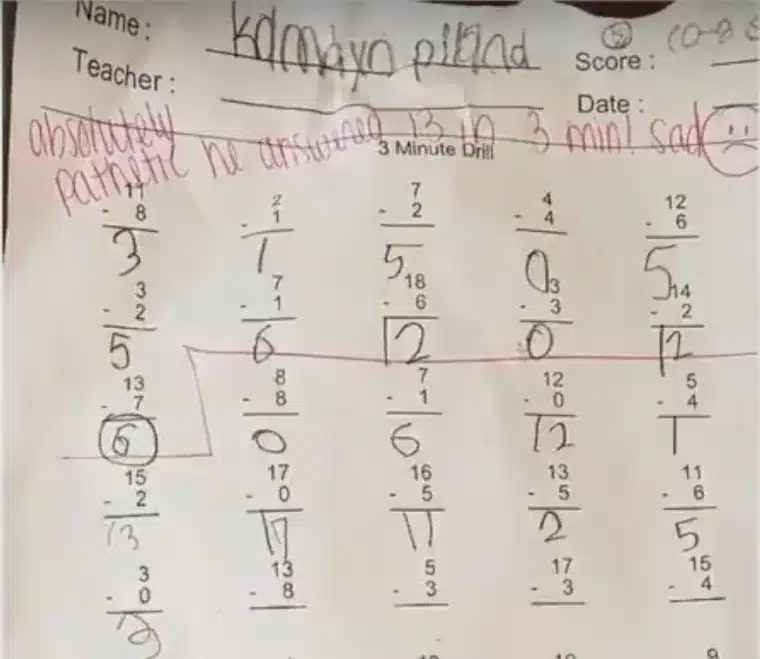 Name: Kamdyn piland
Teacher:
Score:
Date:
absolutely
pathetic he answered 13 in 3 min! sad
3 Minute Drill
11 2 7 4 12
- 8 - 1 - 2 - 4 - 6
3 1 5 0 5
3 7 18 3 14
- 2 - 1 - 6 - 3 - 2
5 6 12 0 12
13 8 7 12 5
- 7 - 8 - 1 - 0 - 4
6 0 6 12 1
15 17 16 13 11
- 2 - 0 - 5 - 5 - 6
13 17 11 2 5
3 13 5 17 15
- 0 - 8 - 3 - 3 - 4
3